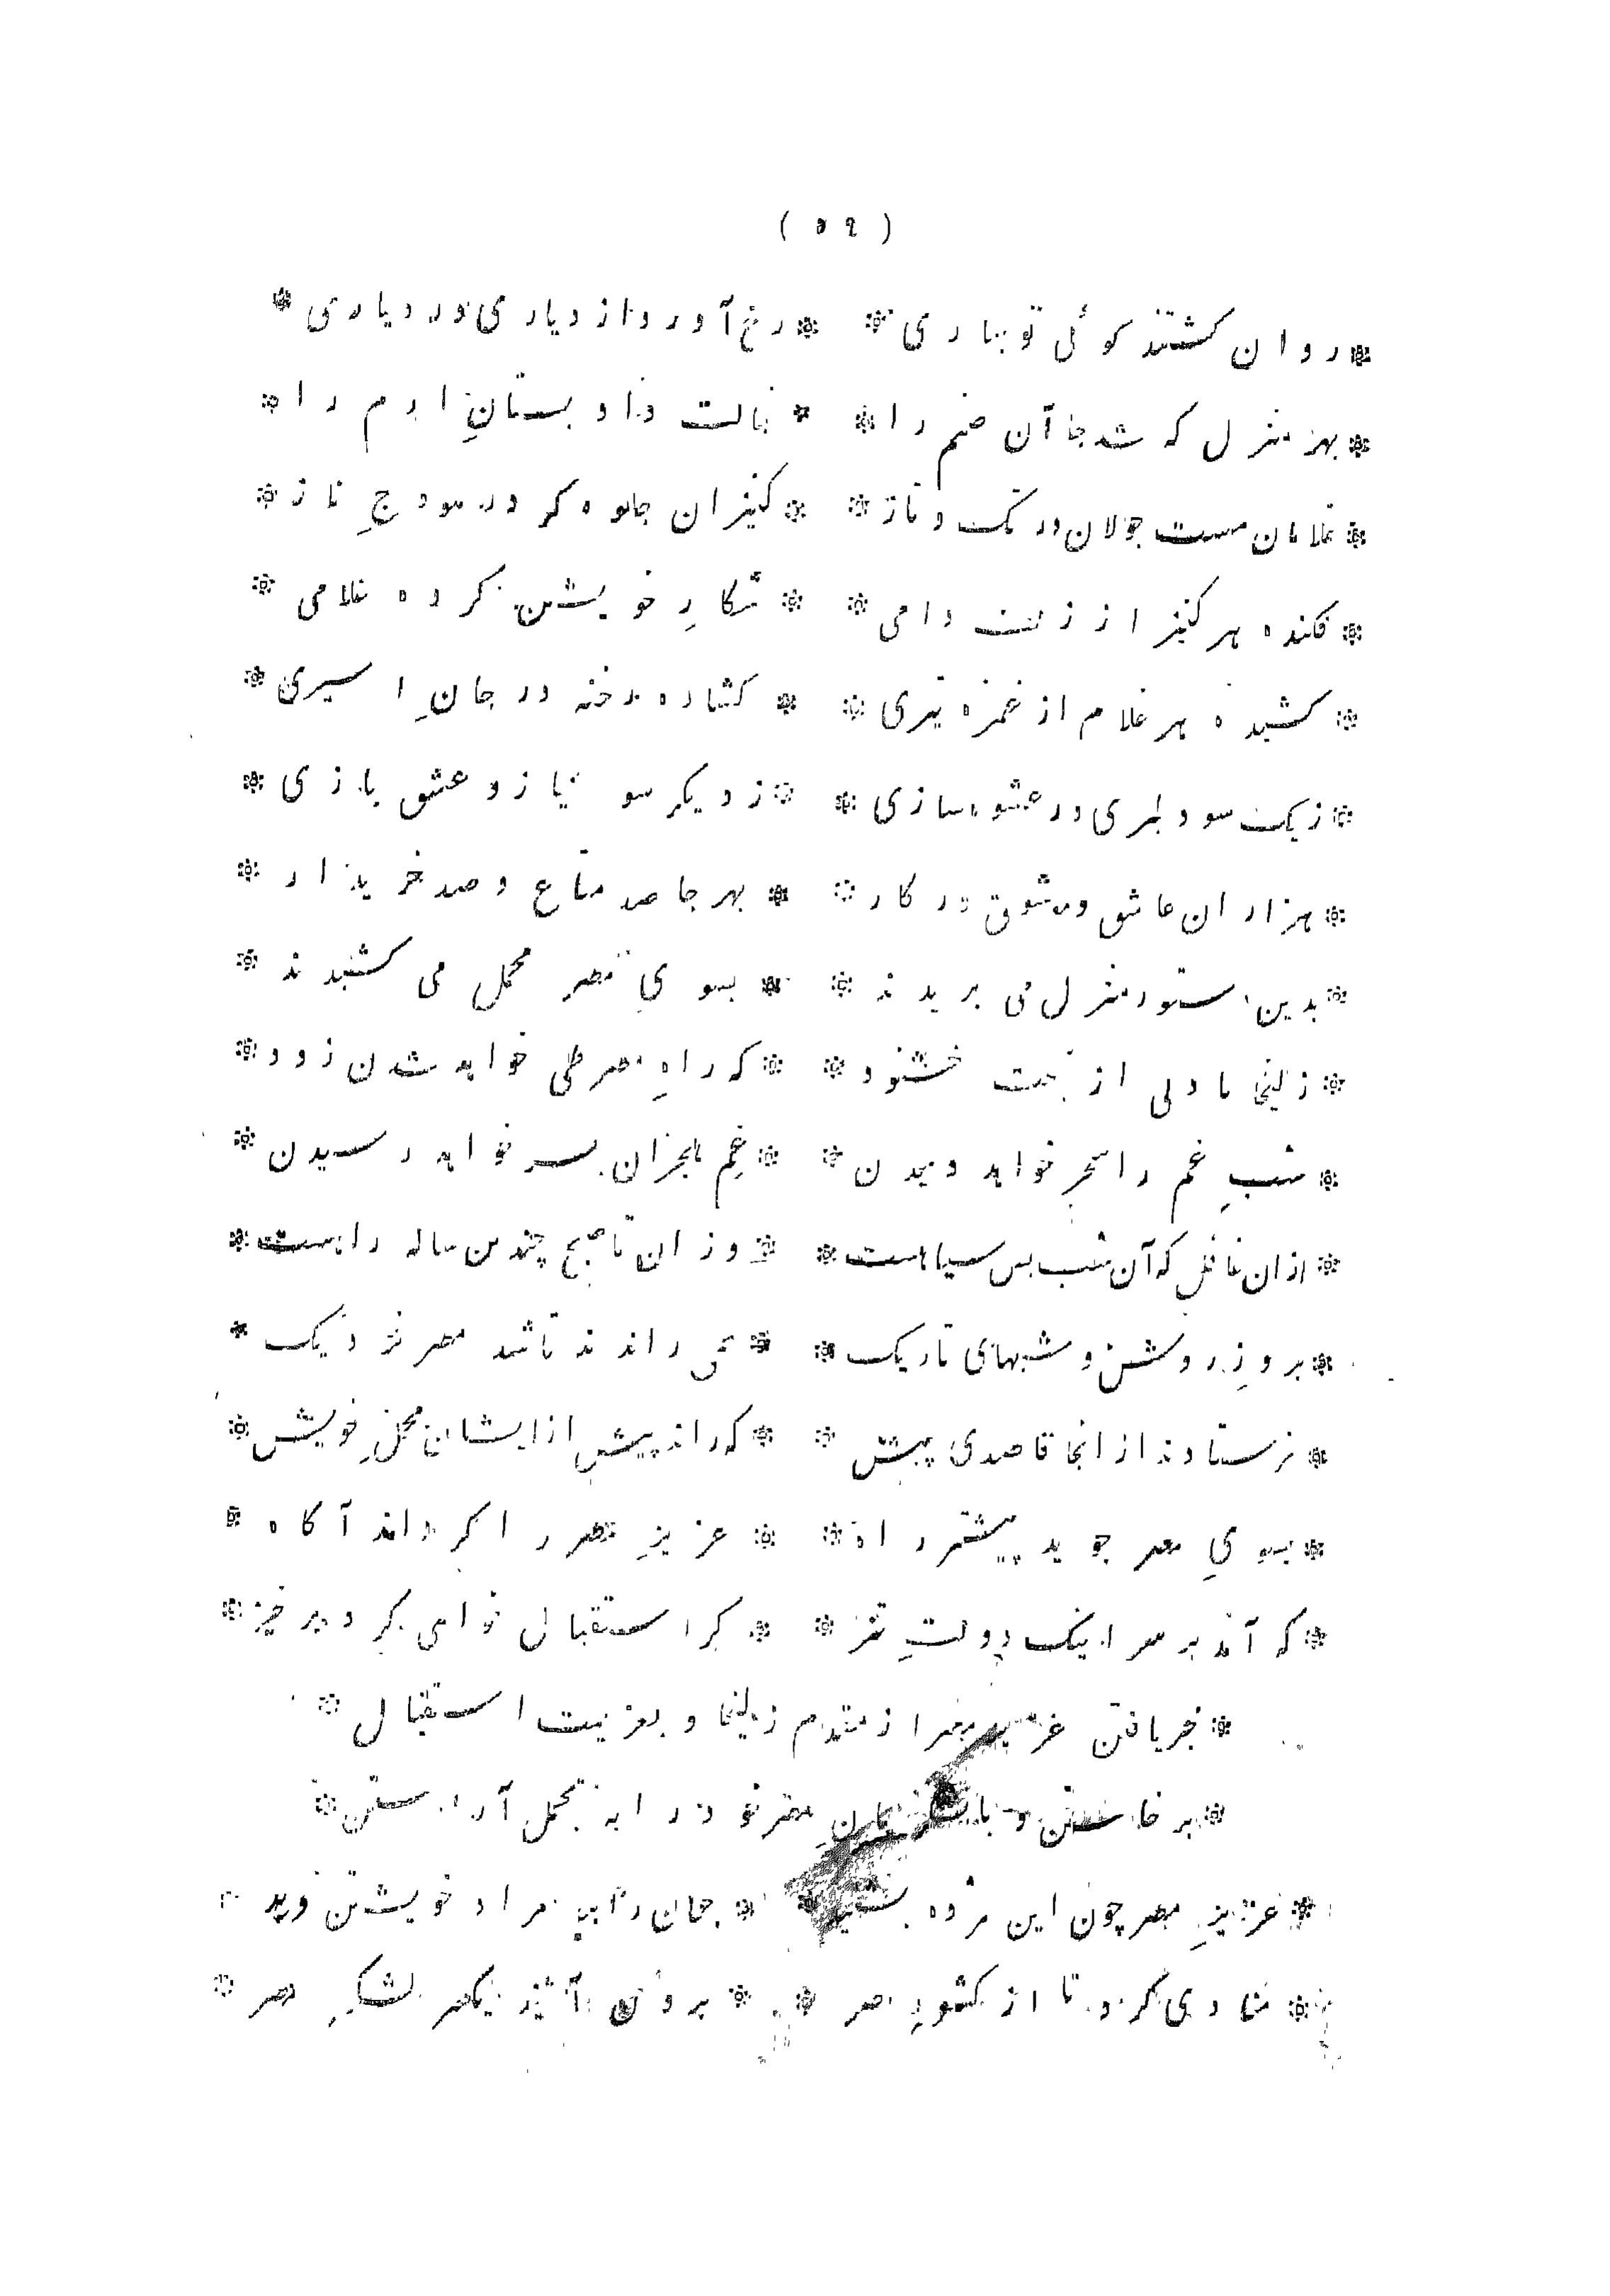 ( ۵۹ )
* روان گشتند گوئی نوبهاری * * رخ آورد از دیاری در دیاری *
* بهر منزل که شد جا آن صنم را * * خجالت داد بستانِ ارم را *
* غلامان مست جولان در تک و تاز * * کنیزان جلوه گر در هودجِ ناز *
* فکنده هر کنیز از زلف دامی * * شکارِ خویشتن کرده غلامی *
* کشیده هر غلام از غمزه تیری * * کشاده رخنه در جانِ اسیری *
* زیک سو دلبری و عشوه سازی * * ز دیگر سو نیاز و عشق بازی *
* هزاران عاشق و معشوق در کار * * بهر جا صد متاع و صد خریدار *
* بدین دستور منزل می بریدند * * بسویِ مصر محمل می کشیدند *
* زلیخا با دلی از بخت خشنود * * که راهِ مصر طی خواهد شدن زود *
* شبِ غم را سحر خواهد دمیدن * * غمِ هجران بسر خواهد رسیدن *
* ازان غافل که آن شب بس سیاهست * * وزان تا صبح چندین ساله راهست *
* بروزِ روشن و شبهای تاریک * * همی راندند تا شد مصر نزدیک *
* فرستادند از انجا قاصدی پیش * * که راند پیش از ایشان محملِ خویش *
* بسویِ مصر جوید پیشتر راه * * عزیزِ مصر را گرداند آگاه *
* که آمد بر سر اینک دولتِ تیز * * گر استقبال خواهی کرد برخیز *
* خبر یافتن عزیز مصر از مقدم زلیخا و بعزیمت استقبال *
* برخاستن و با لشکریانِ مصر خود را به تجمل آراستن *
* عزیزِ مصر چون این مژده بشنید * * جهان را بر مراد خویشتن دید *
* منادی کرد تا از کشورِ مصر * * برون آیند یکسر لشکرِ مصر *